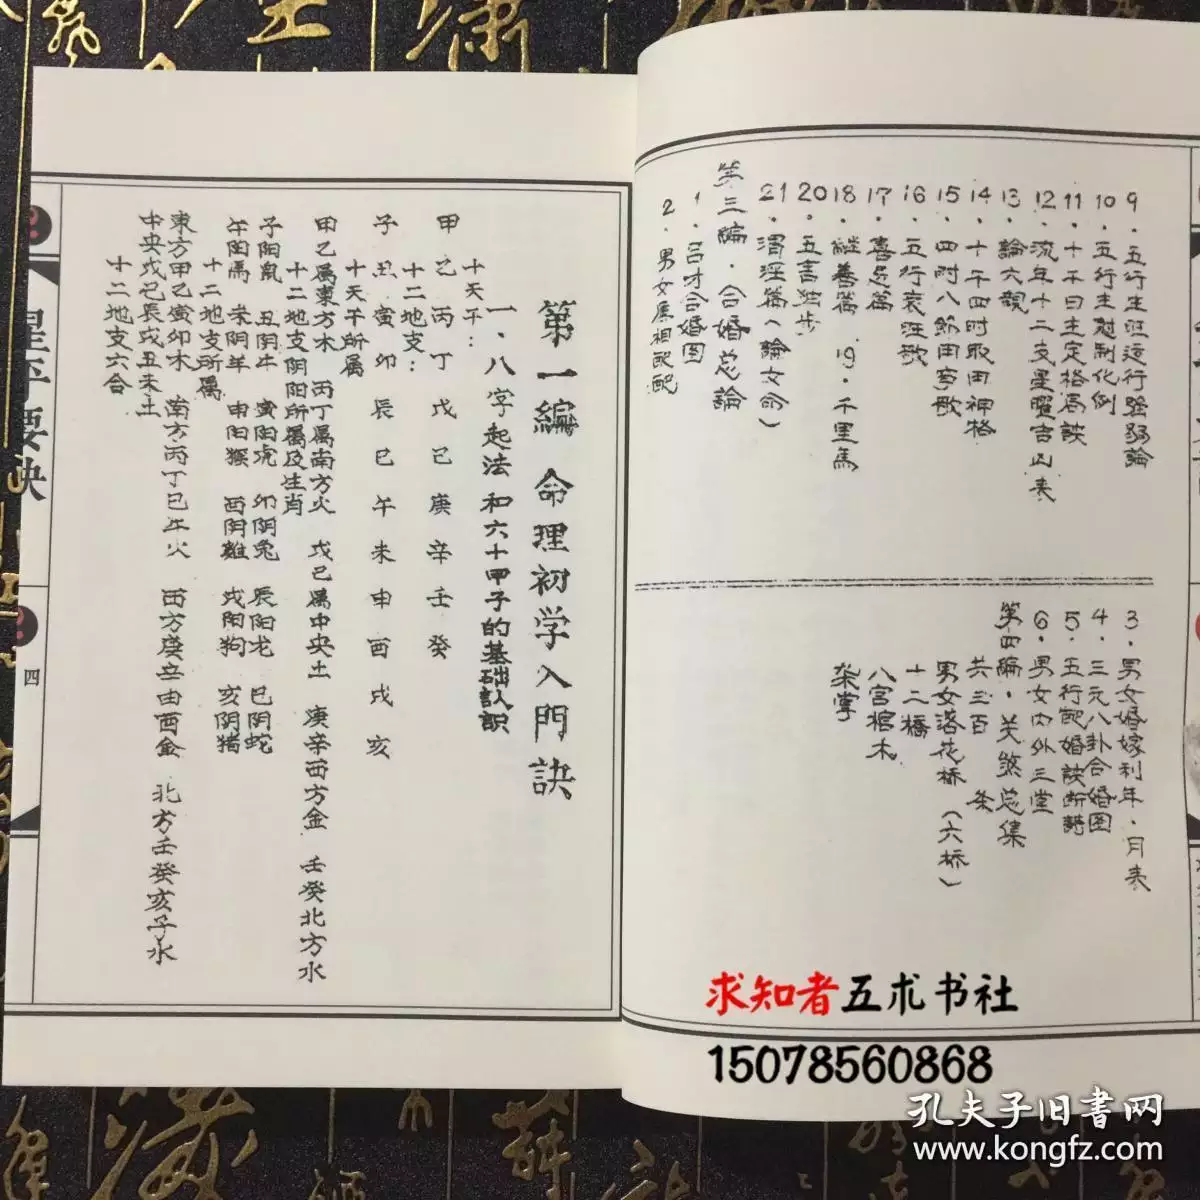 9．五行生旺运行强弱論
10．五行生尅制化例
11．十干日主定格局訣
12．流年十二支星曜吉凶表
13．論六親
14．十干四时取用神格
15．四时八節用事歌
16．五行衰旺歌
17．喜忌篇
18．继善篇 19．千里馬
20．五言独步
21．渭涇篇（論女命）
第三編．合婚总論
1．吕才合婚图
2．男女属相配配
3．男女婚嫁利年．月表
4．三元八卦合婚图
5．五行配婚訣断詩
6．男女内外三堂
第四編．关煞总集
共三百 条
男女落花桥（六桥）
十二橋
八宫棺木
架掌
第一編 命理初学入門訣
一．八字起法和六十甲子的基础认識
十天干：
甲乙丙丁戊己庚辛壬癸
十二地支：
子丑寅卯辰巳午未申酉戌亥
十天干所属
甲乙属東方木 丙丁属南方火 戊己属中央土 庚辛西方金 壬癸北方水
十二地支阴阳所属及生肖
子阳鼠 丑阴牛 寅阳虎 卯阴兔 辰阳龙 巳阴蛇
午阳馬 未阴羊 申阳猴 酉阴雞 戌阳狗 亥阴猪
十二地支所属
東方甲乙寅卯木 南方丙丁巳午火 西方庚辛申酉金 北方壬癸亥子水
中央戊己辰戌丑未土
十二地支六合
星平要訣
四
求知者五术书社
15078560868
孔夫子旧書网
www.kongfz.com